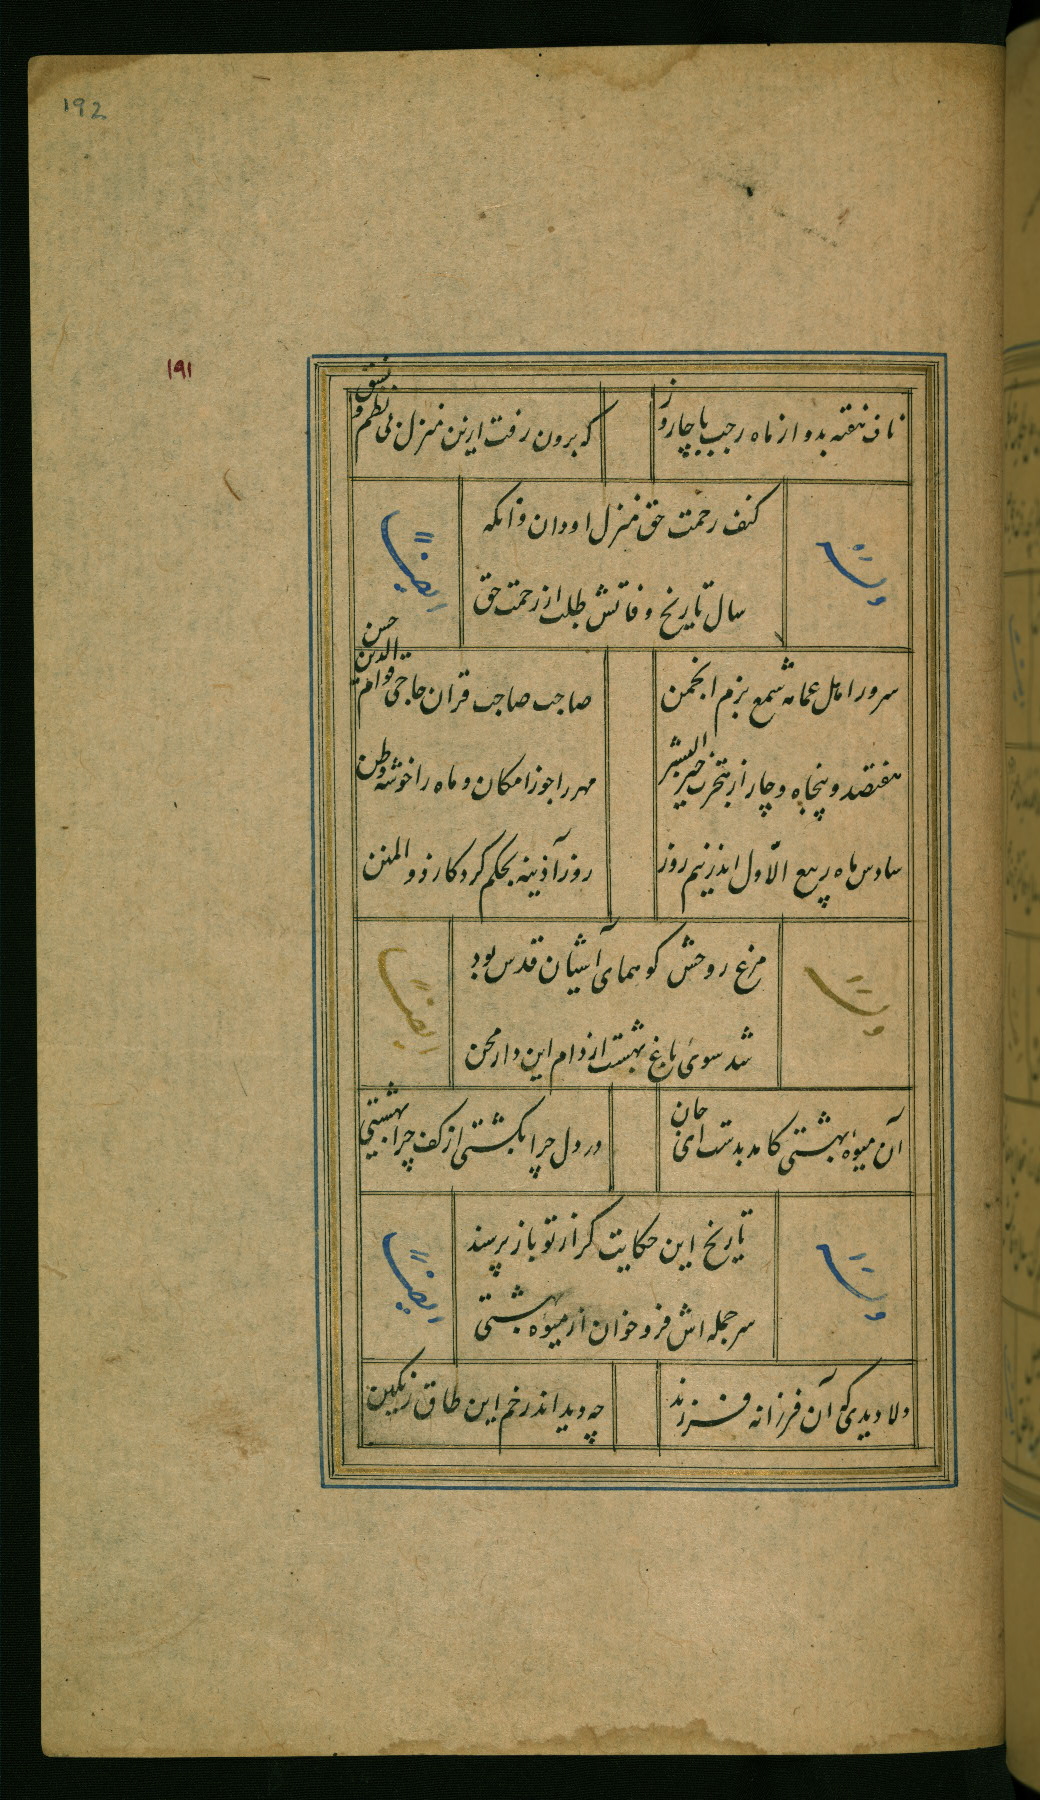 192
۱۹۱
ناف هفته بدو از ماه رجب با چار روز
که برون رفت ازین منزل بی نظم و نسق
کنف رحمت حق منزل او دان وانکه
سال تاریخ وفاتش طلب از رحمت حق
وله
ایضاً
سرور اهل عمامه شمع بزم انجمن
صاحب صاحب قران حاجی قوام الدین حسن
هفتصد و پنجاه و چار از هجرت خیر البشر
مهر را جوزا مکان و ماه را خوشه وطن
سادس ماه ربیع الاّول اندر نیم روز
روز آذینه بحکم کردکار ذو المنن
مرغ روحش کو همای آشیان قدس بود
شد سوی باغ بهشت از دام این دار محن
ایضاً
آن میوهٔ بهشتی کامد بدستت ای جان
در دل چرا نکشتی از کف چرا بهشتی
تاریخ این حکایت کر از تو باز پرسند
سر جمله اش فرو خوان از میوه بهشتی
ایضاً
دلا دیدی که آن فرزانه فرزند
چه دید اندر خم این طاق رنکین